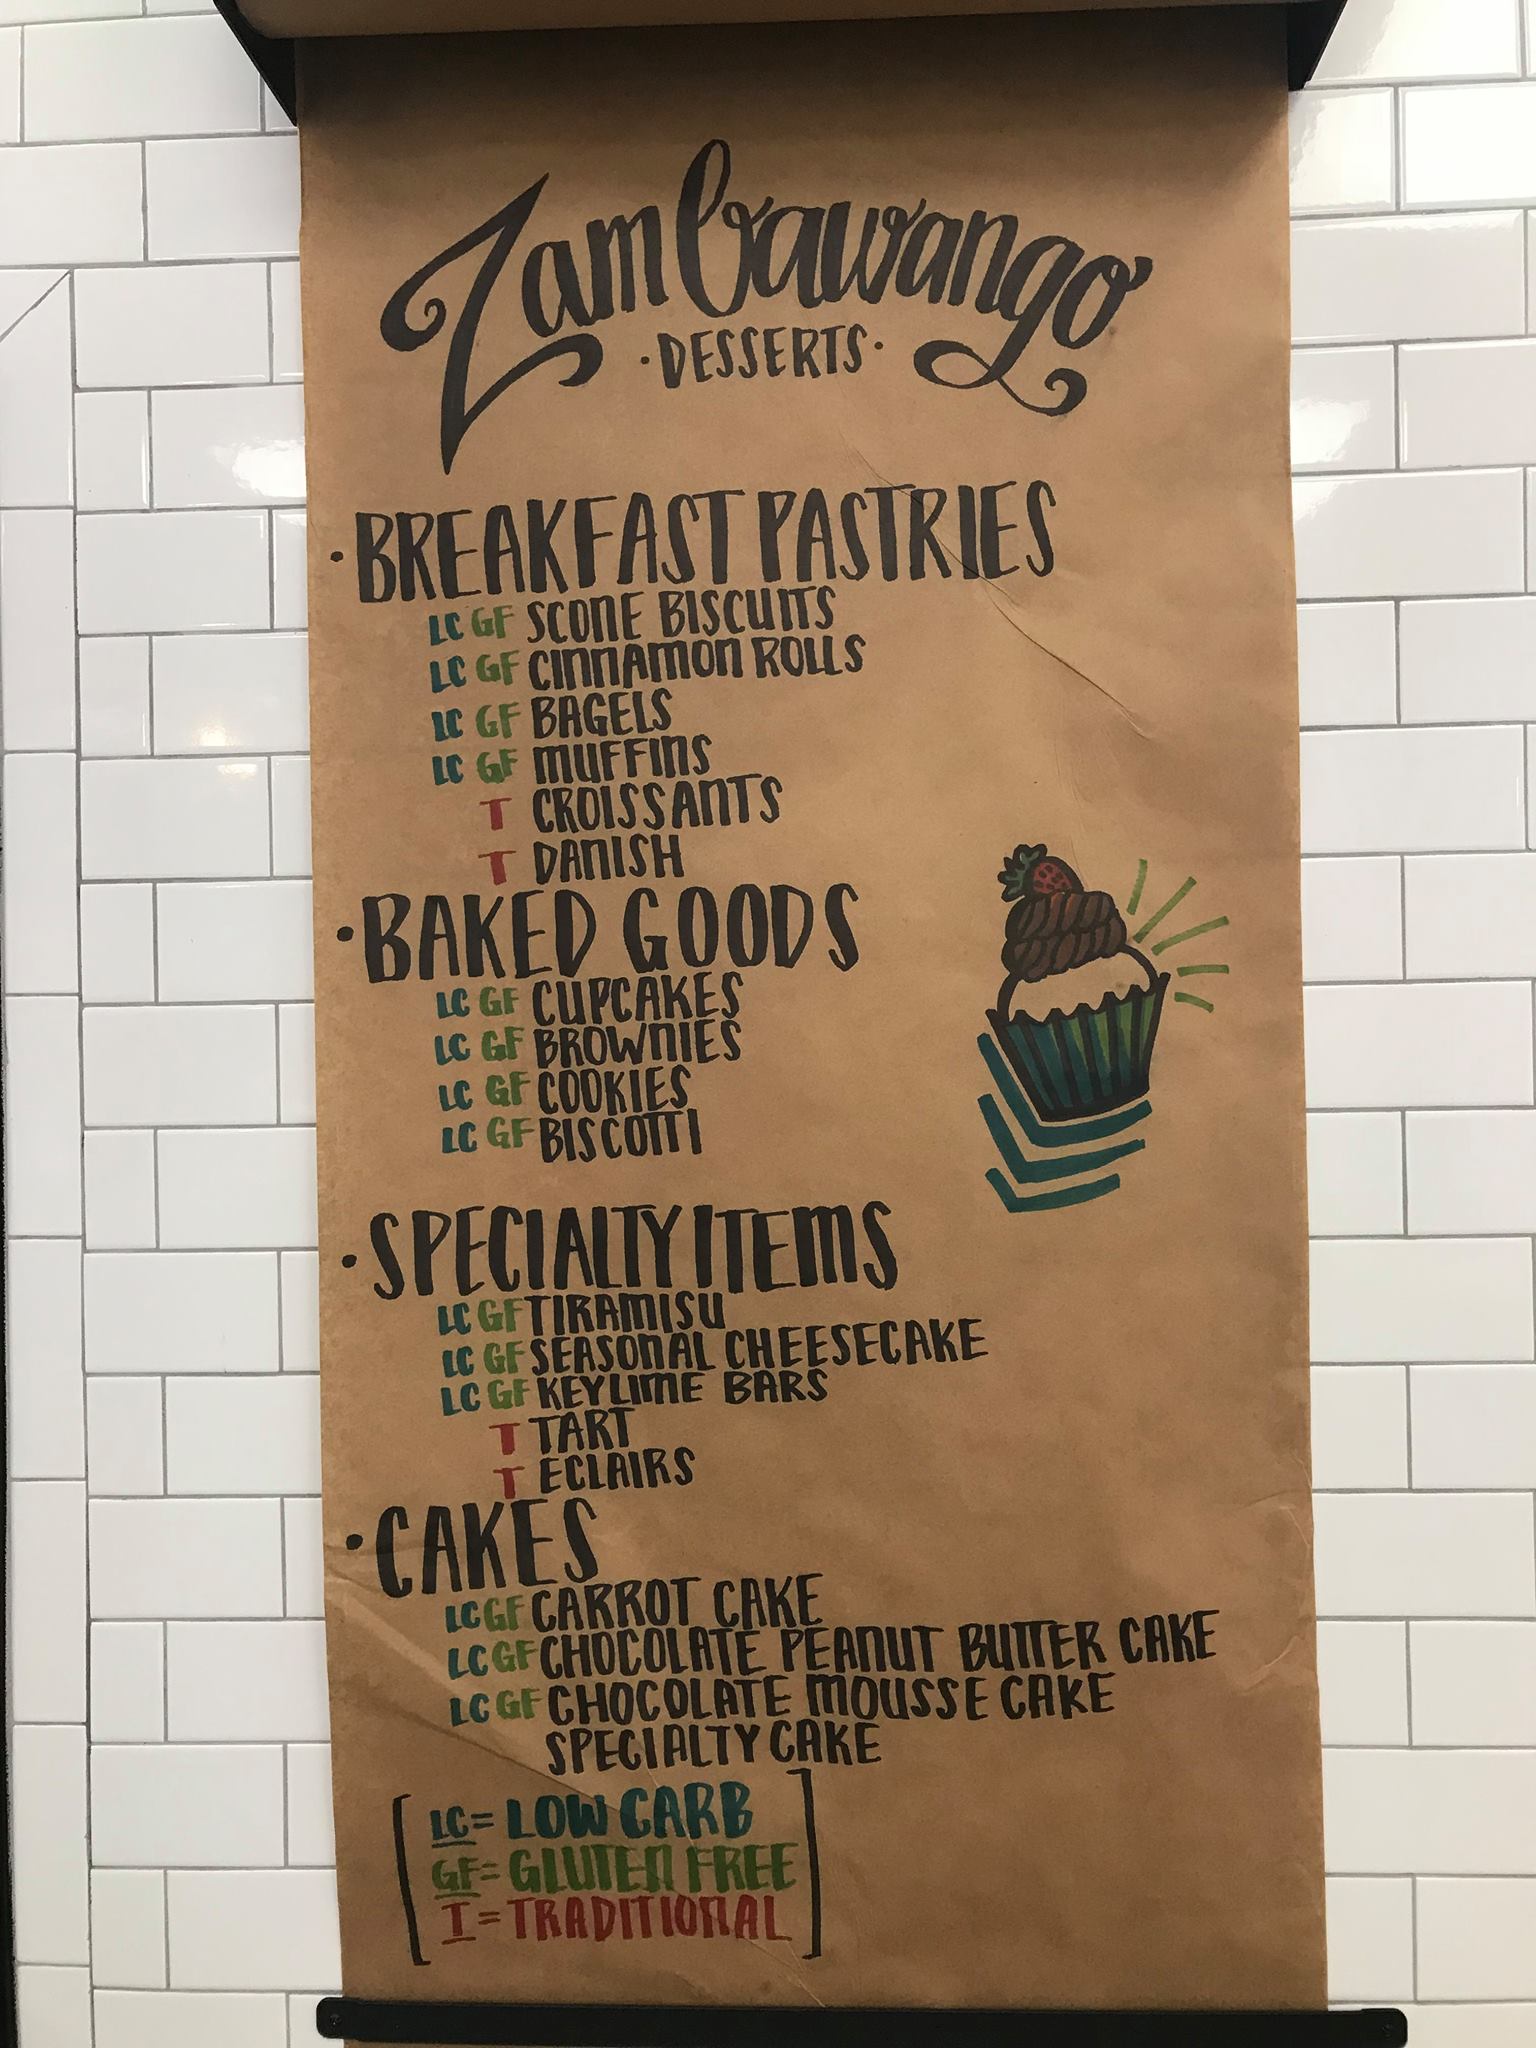 Zambawango
·DESSERTS·
·BREAKFAST PASTRIES
LC GF SCONE BISCUITS
LC GF CINNAMON ROLLS
LC GF BAGELS
LC GF MUFFINS
T CROISSANTS
T DANISH
·BAKED GOODS
LC GF CUPCAKES
LC GF BROWNIES
LC GF COOKIES
LC GF BISCOTTI
·SPECIALTY ITEMS
LC GF TIRAMISU
LC GF SEASONAL CHEESECAKE
LC GF KEYLIME BARS
T TART
T ECLAIRS
·CAKES
LC GF CARROT CAKE
LC GF CHOCOLATE PEANUT BUTTER CAKE
LC GF CHOCOLATE MOUSSE CAKE
SPECIALTY CAKE
LC = LOW CARB
GF = GLUTEN FREE
T = TRADITIONAL